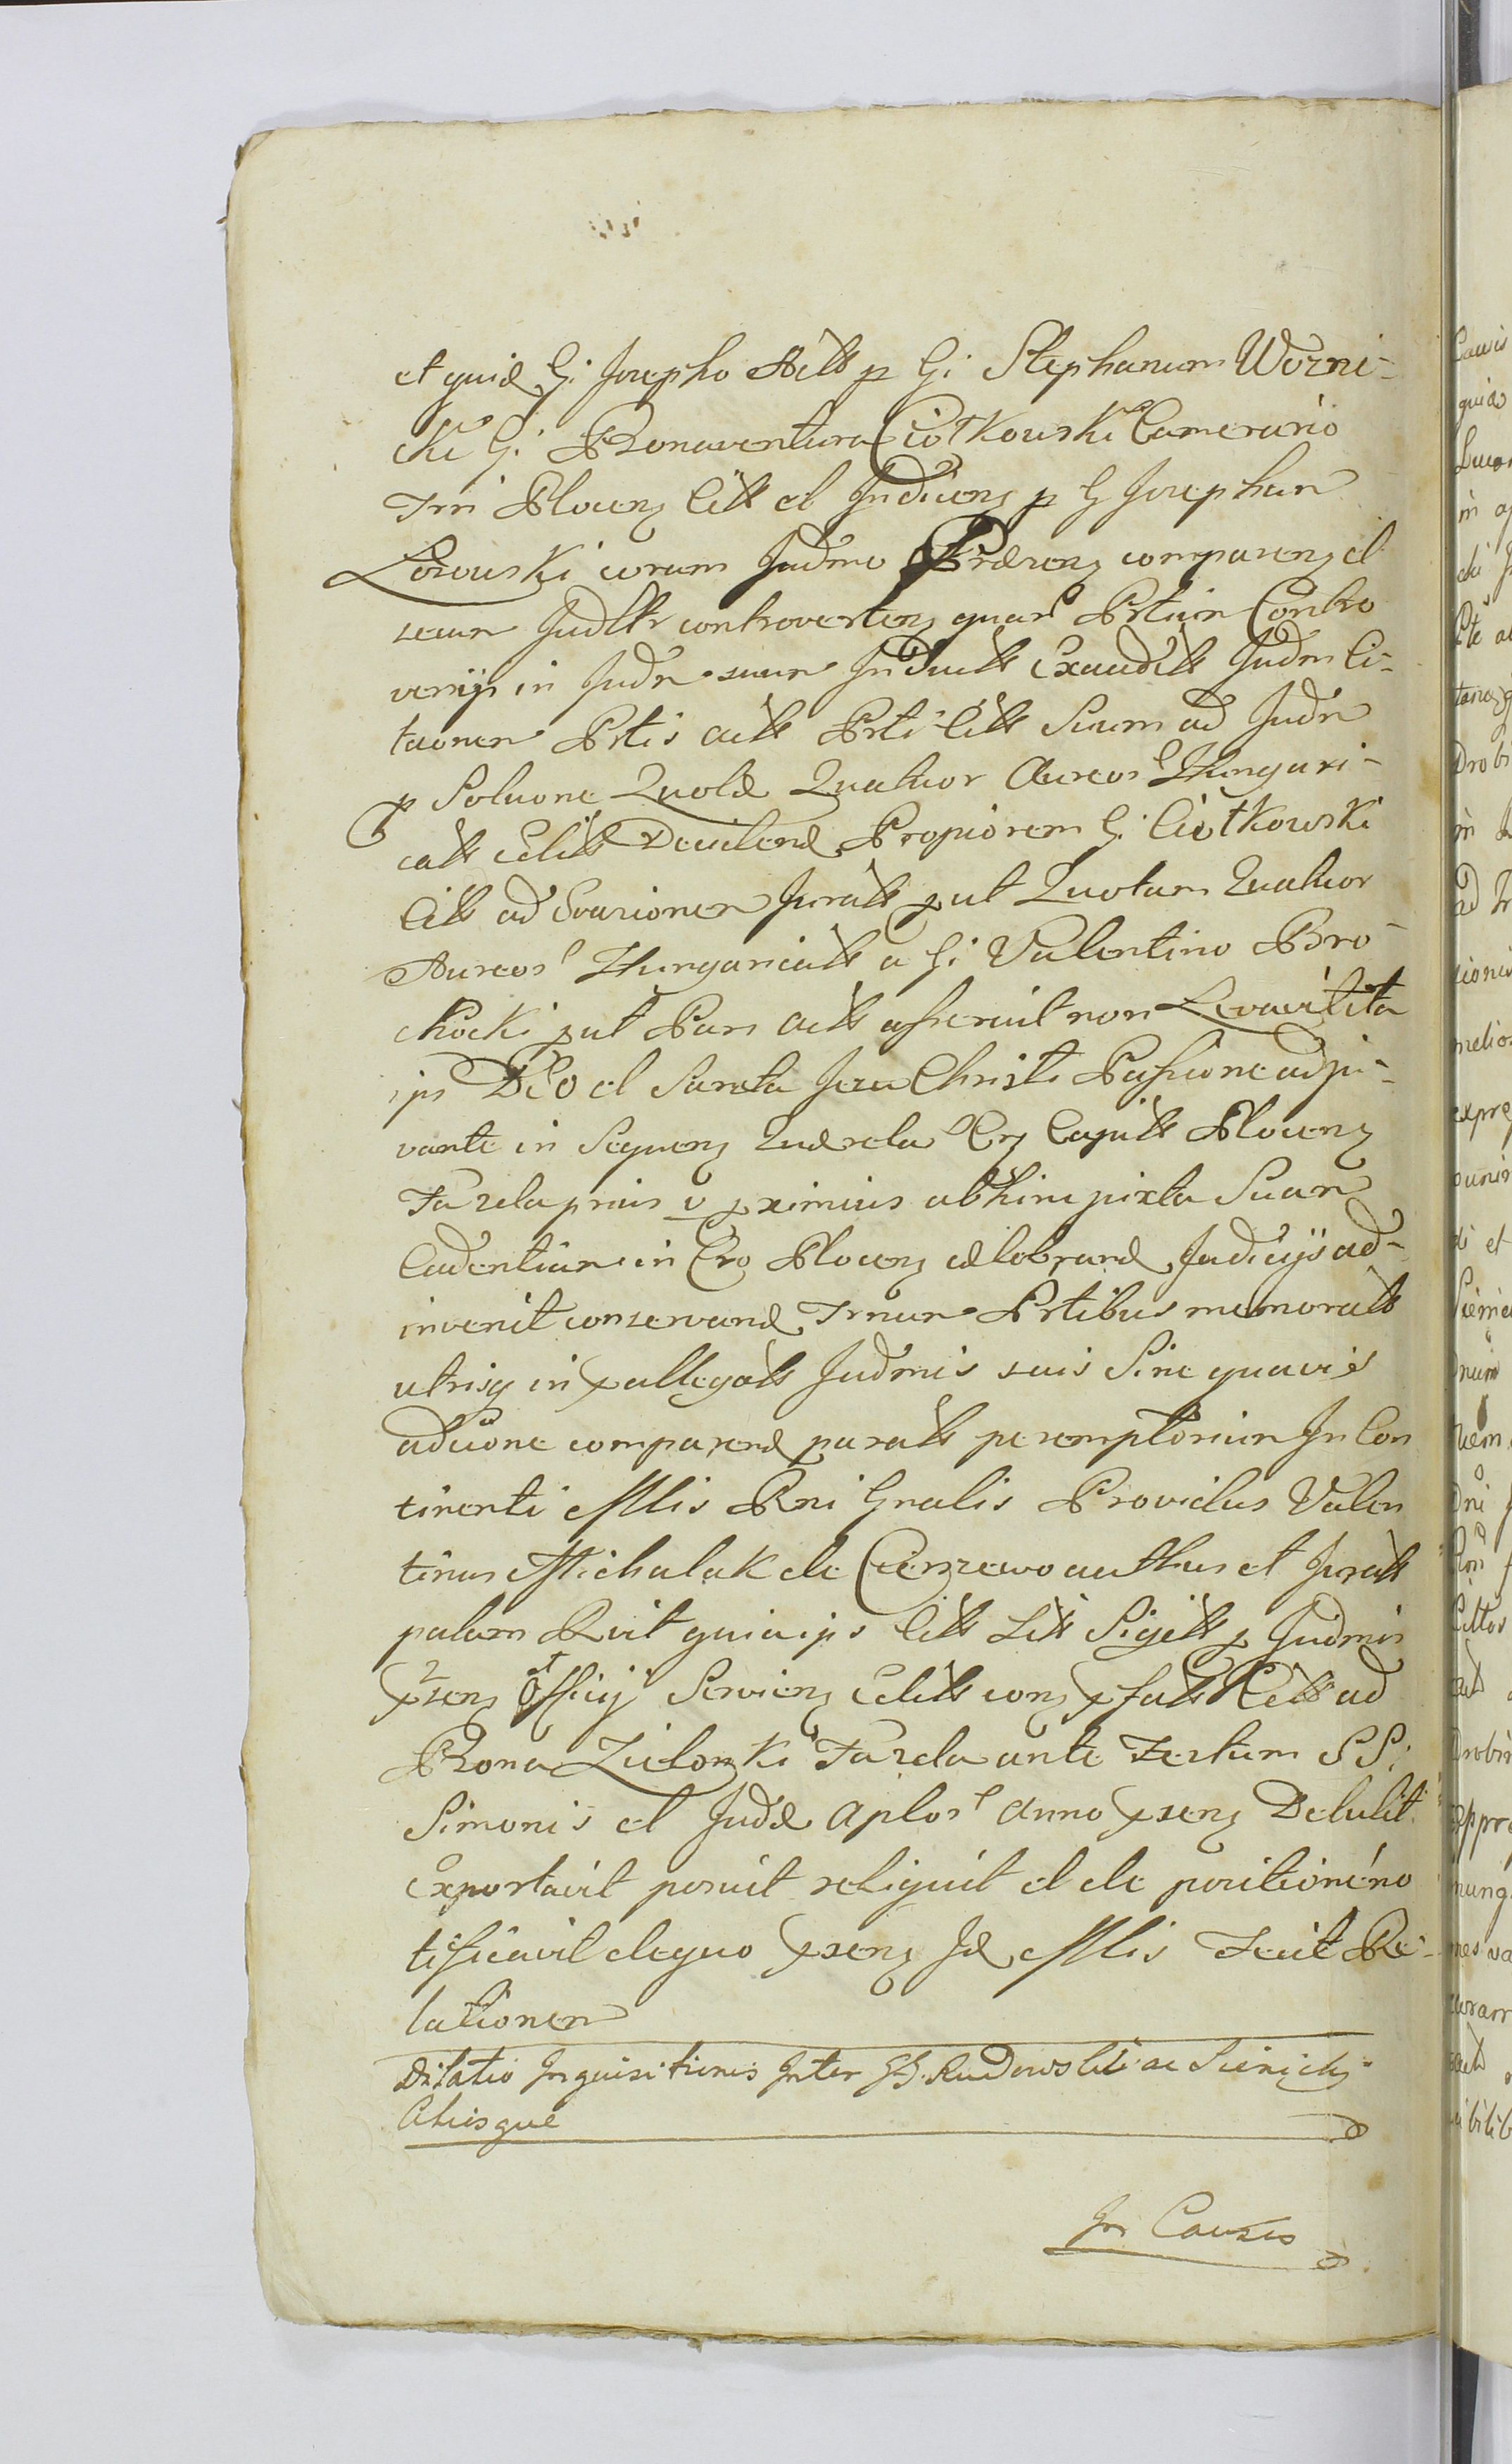 et quid G. Josepho Actt p G. Stephanum Wozni-
cki G. Bonaventura Ciołkowski Camerario
Trri Plocen Citt et Inducen p G Josephum
Lozowski coram Judmo Præsen comparen et
secum Judltr controverten quar Prtium Contro
versys in Judm suum Inductt Exaudtt Judm Ci-
taonem Prtis actt Prti Citt Suum ad Judm
p Soluone Quotæ Quatuor Aureor Hungari-
catt Celitt Decidend Propiorem G. Ciołkowski
Citt ad Evasionem Juratt put Quotam Quatuor
Aureor Hungaricatt a G. Valentino Bro-
chocki put Pars actt asseruit non Levavit ita
ips Deo et Sancta Jesu Christi Passione adju-
vante in Sequen Querela Cr Capitt Plocen
Fa 2da prius v pximius abhinc juxta Suam
Cadentiam in Cro Plocen celebrand Judicijs ad-
invenit conservand Trnum Prtibus memoratt
utrisq in pallegatt Judmis suis Sine quavis
aducone comparend paratt peremptorium In Con
tinenti Mlis Rni Gnalis Providus Valen
tinus Michalak de Cierszewo authus et Juratt
palam Rvit quia ips Citt Litt Sigtt p Judmis
psen Officij Servien Celitt con pfatt Rett ad
Bona Zielonki Fa 2da ante Festum SS.
Simonis et Judæ Aplor Anno psen Detulit
Exportavit posuit reliquit et de positione no
tificavit de quo psen Jd Mlis Fecit Re-
lationem
Dilatio Inquisitionis Inter GG. Rudowskie ac Sienicki
Aliisque
In Causis